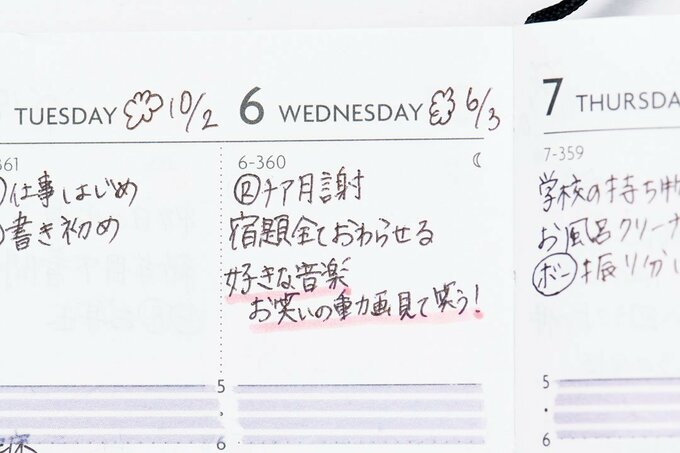 TUESDAY 10/2
361
仕事はじめ
書き初め
6 WEDNESDAY 6/3
6-360
Ⓡチア月謝
宿題全ておわらせる
好きな音楽
お笑いの動画見て笑う!
5
6
7 THURSDA
7-359
学校の持ち物
お風呂クリーナ
ボー 振り分け
5
6